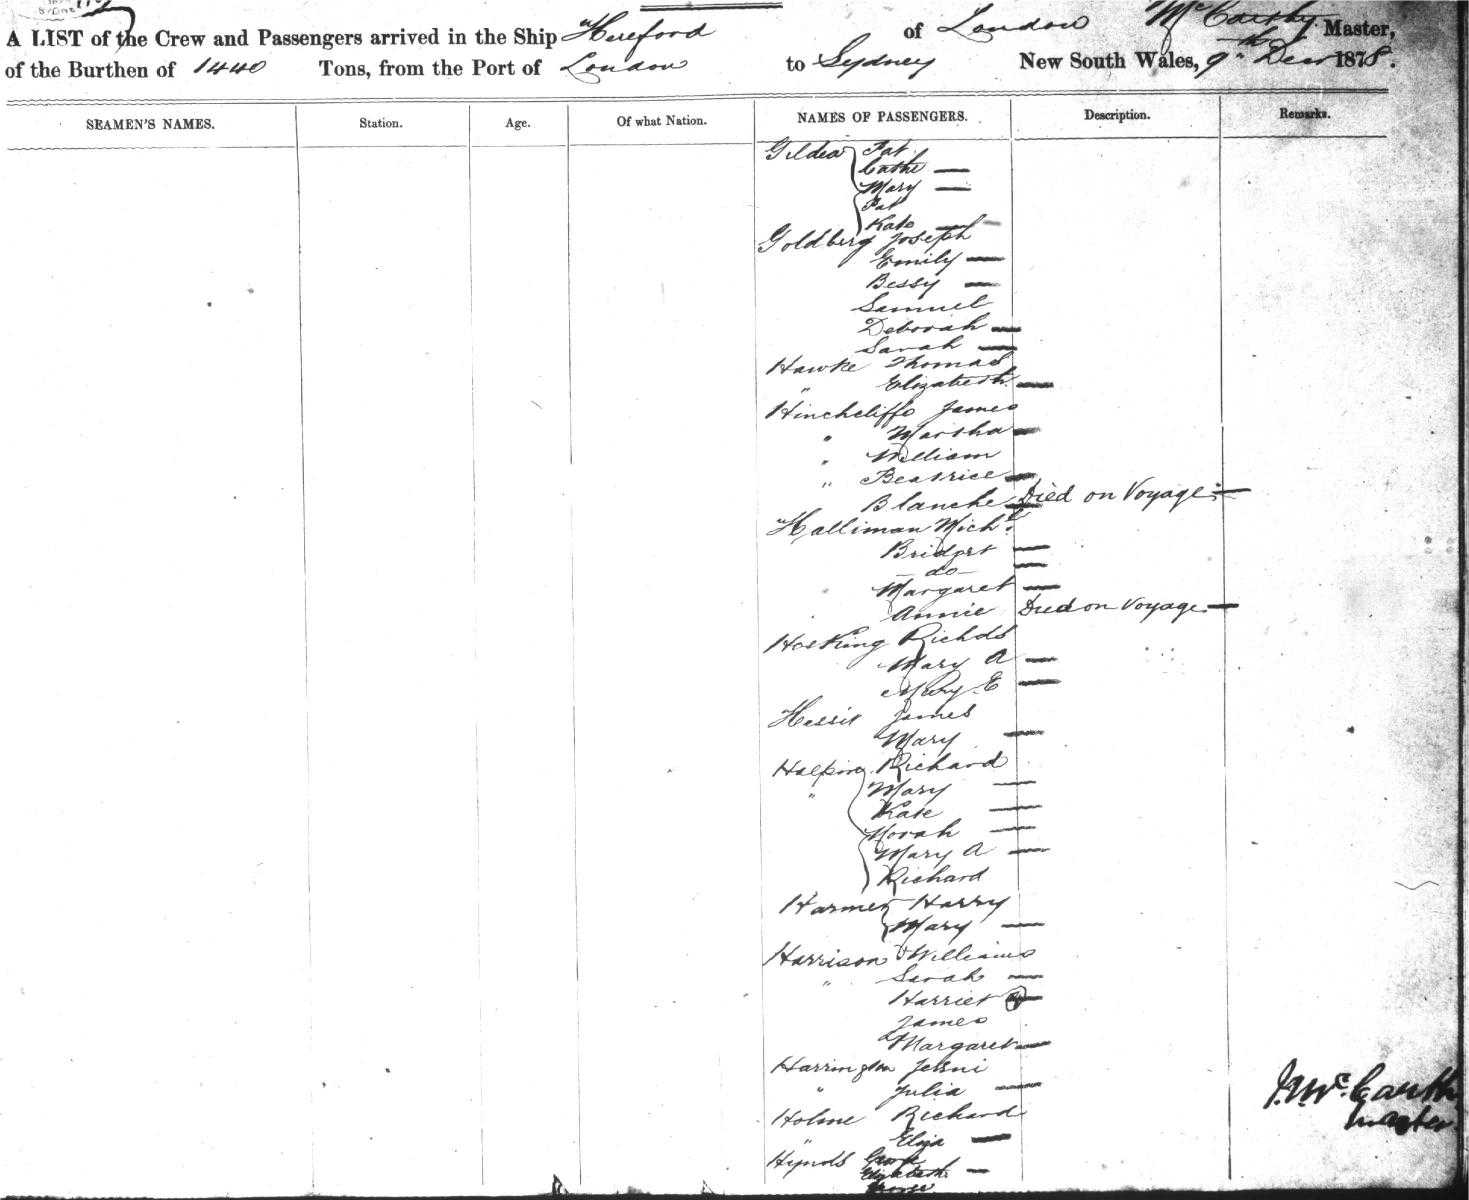 A LIST of the Crew and Passengers arrived in the Ship Hereford of London McCarthy Master,
of the Burthen of 1440 Tons, from the Port of London to Sydney New South Wales, 9th Decr 1878.
SEAMEN'S NAMES. Station. Age. Of what Nation. NAMES OF PASSENGERS. Description. Remarks.
Gildea Pat
Cathe —
Mary —
Pat
Kate —
Goldberg Joseph
Emily —
Bessy —
Samuel
Deborah —
Sarah —
Hawke Thomas
" Elizabeth —
Hinchcliffe James
" Martha —
" William
" Beatrice —
Blanche Died on Voyage —
Halliman Michl
Bridget —
— do — —
Margaret —
Annie Died on Voyage —
Hosking Richd
Mary A —
Mary E —
James
Mary —
Halpin Richard
" Mary —
Kate —
Norah —
Mary A —
Richard
Harmer Harry
Mary —
Harrison William
" Sarah —
Harriet —
James
Margaret —
Harrington
" Julia —
Holme Richard
" Eliza —
Hynds George
Elizabeth —
McCarthy
Master